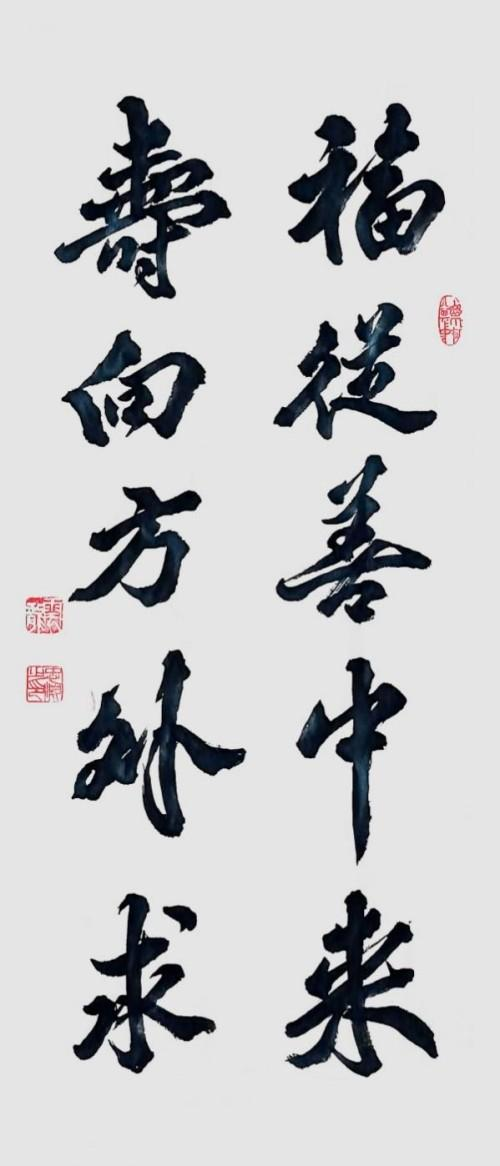 福從善中来
壽向方外求